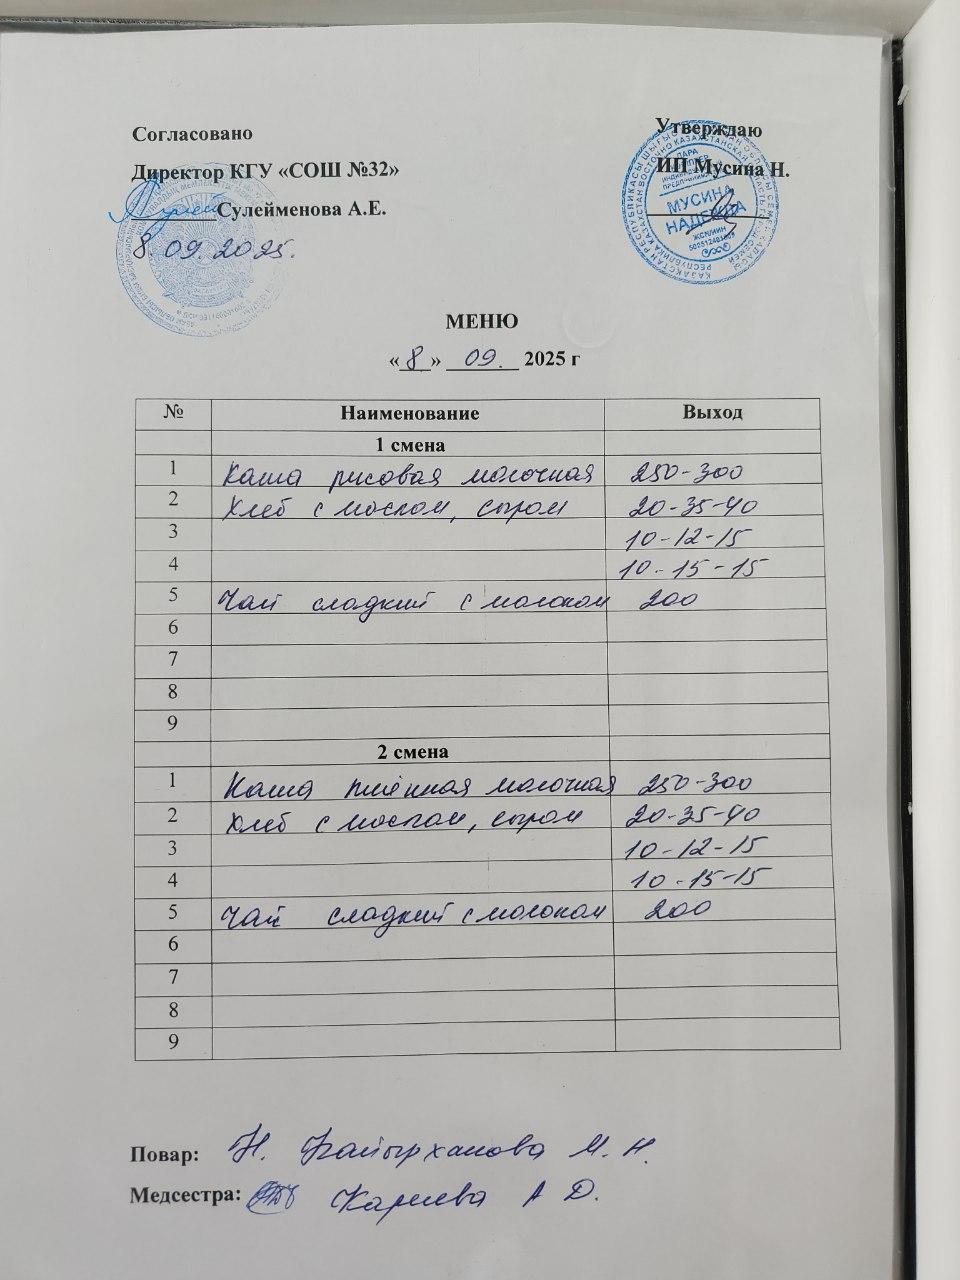 Согласовано
Утверждаю
Директор КГУ «СОШ №32»
ИП Мусина Н.
Сулейменова А.Е.
8.09.2025.
МУСИНА
НАДЕЖДА
ЖСН/ИИН
МЕНЮ
«8» 09. 2025 г
№ Наименование Выход
1 смена
1 Каша рисовая молочная 250-300
2 Хлеб с маслом, сыром 20-35-40
3 10-12-15
4 10-15-15
5 Чай сладкий с молоком 200
6
7
8
9
2 смена
1 Каша пшённая молочная 250-300
2 Хлеб с маслом, сыром 20-35-40
3 10-12-15
4 10-15-15
5 Чай сладкий с молоком 200
6
7
8
9
Повар: Кайырханова М. Н.
Медсестра: А Д.